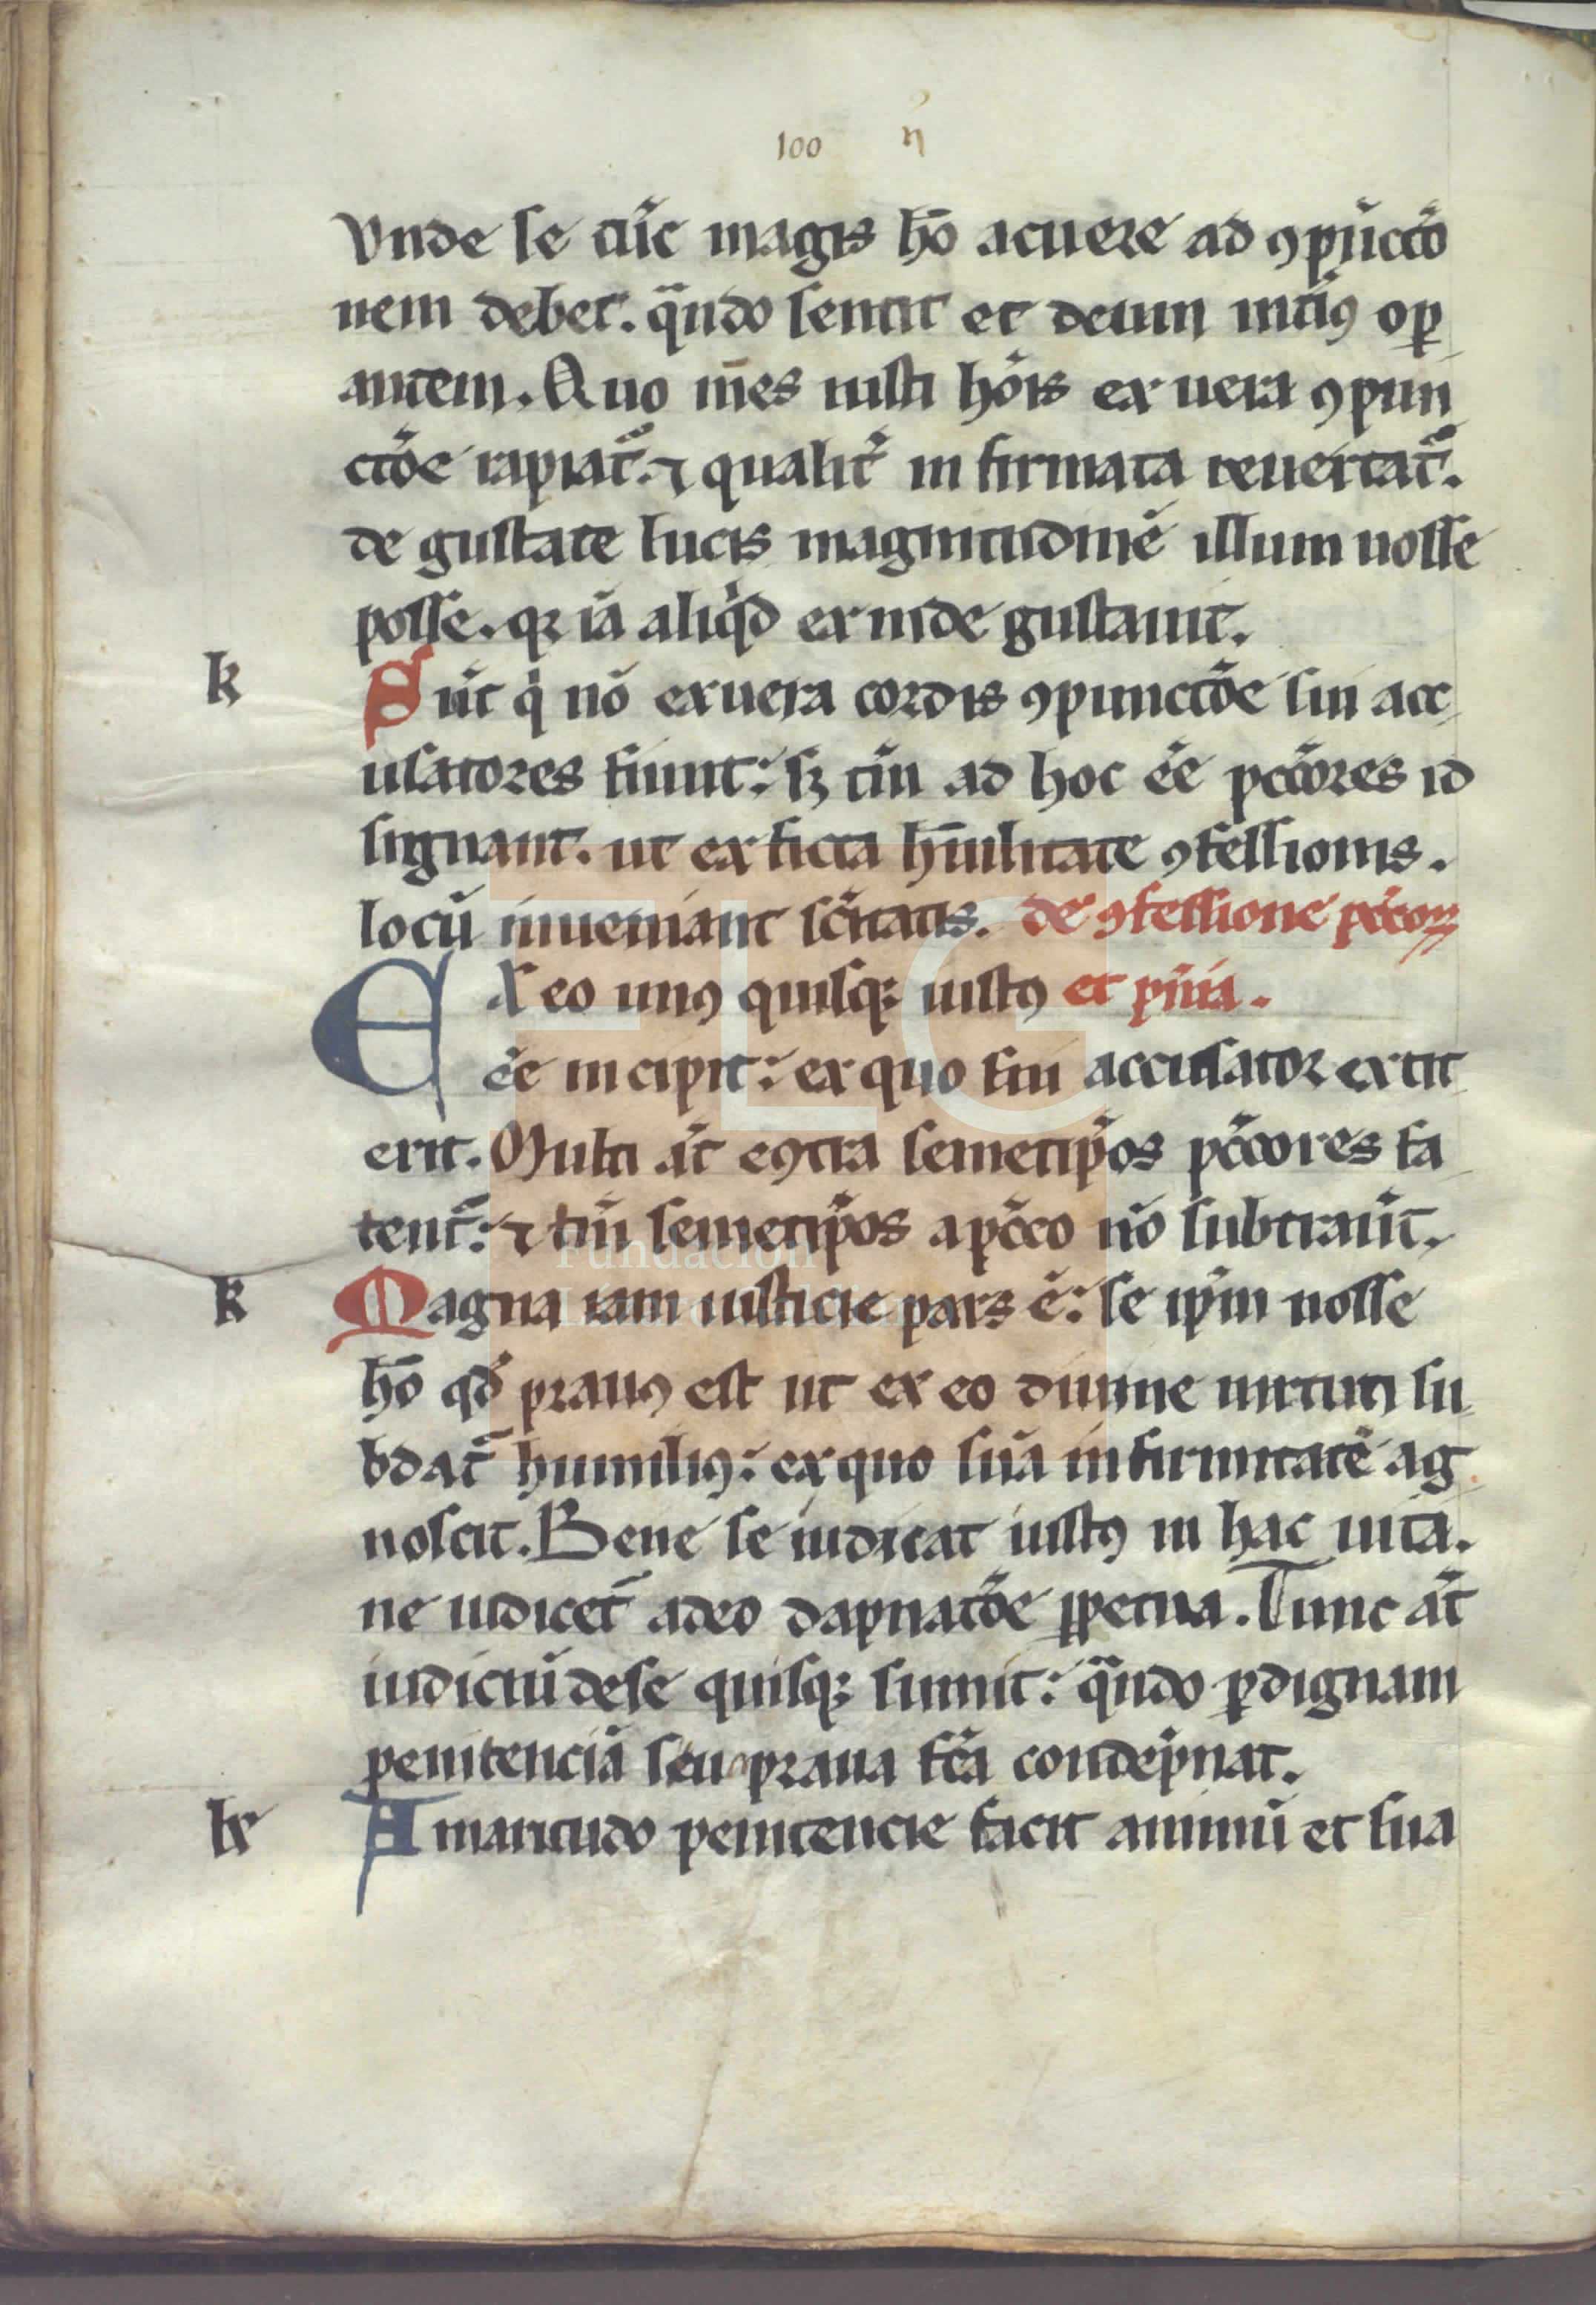 100 n
Vnde se tũc magis hõ acuere ad ꝯpũcctõ
nem debet. q̃ndo sentit et deum intiꝰ oꝑ
antem. Quo m̃es iusti hõis ex uera ꝯpun
ctõe rapiat᷑. ⁊ qualit̃ in firmata reuertat᷑.
de gustate lucis magnitudinẽ illum nosse
posse. qꝛ iã aliq̉d exinde gustauit.
k Sũt q̉ nõ ex uera cordis ꝯpunctõe sui acc
usatores fiunt: sꝫ tm̃ ad hoc ẽe pccõres id
signant. ut ex ficta hũilitate ꝯfessionis.
locũ inueniant sc̃itatis. de ꝯfessione pccõꝝ
EX eo unꝰ quisqꝫ iustꝰ et pñia.
ẽe incipit: ex quo sui accusator extit
erit. Multi aũt eꝯtra semetip̃os pccõres fa
tent᷑: ⁊ tm̃ semetip̃os a pccõ nõ subtraũt.
k Magna iam iusticie pars ẽ: se ip̃m nosse
hõ qđ prauꝰ est ut ex eo diuine uirtuti su
bdat᷑ humiliꝰ: ex quo suã infirmitatẽ ag
noscit. Bene se iudicat iustꝰ in hac uita.
ne iudicet᷑ adeo dapnatõe ꝑpetua. Tunc aũt
iudiciũ de se quisqꝫ sumit: q̃ndo ꝑ dignam
penitenciã sua praua fc̃a condẽpnat.
k Amaritudo penitencie facit animũ et sua
FLG
Fundación